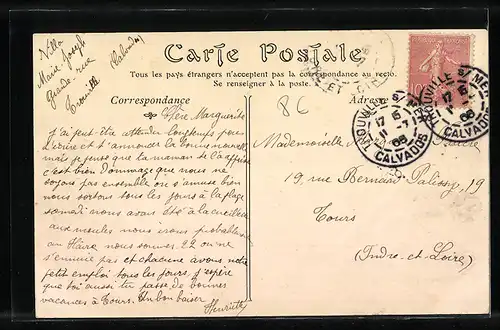 Villa
Marie Joseph
Grande rue
Trouville (Calvados)
Carte Postale
Tous les pays étrangers n'acceptent pas la correspondance au recto.
Se renseigner à la poste.
Correspondance
Adresse
86
Chère Marguerite
J'ai peut être attendu longtemps pour
t'écrire et t'annoncer la bonne nouvelle
mais je pense que ta maman te l'a
c'est bien dommage que nous ne
soyons pas ensemble on s'amuse bien
nous sortons tous les jours à la plage
samedi nous avons été à la cueillette
aux moules nous irons probablement
au Hâvre nous sommes 22 on ne
s'ennuie pas et chacune avons notre
petit emploi tous les jours j'espère
que toi aussi tu passe de bonnes
vacances à Tours. Un bon baiser
Henriette
Mademoiselle
19, rue Bernard Palissy, 19
Tours
(Indre-et-Loire)
TROUVILLE S/ MER
11 -7
08
CALVADOS
TROUVILLE S/ MER
11 -7
08
CALVADOS
10